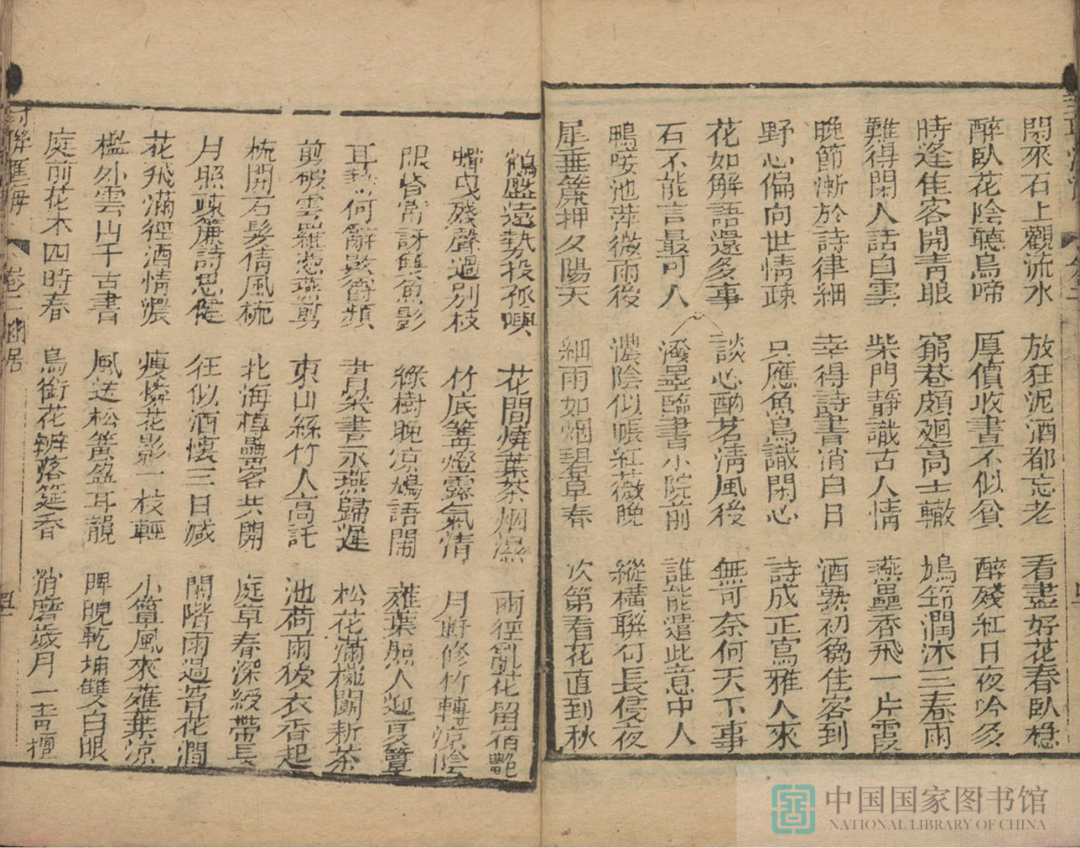 閑來石上觀流水 放狂泥酒都忘老 看盡好花春臥穩
醉臥花陰聽鳥啼 厚價收書不似貧 醉殘紅日夜吟多
時逢佳客開青眼 窮巷頗廻高士轍 鳩笻潤沐三春雨
難得閑人話白雲 柴門靜識古人情 燕壘香飛一片雲
晚節漸於詩律細 幸得詩書消白日 酒熟初窮佳客到
野心偏向世情疎 只應魚鳥識閑心 詩成正寫雅人來
花如解語還多事 談心酌茗淸風後 無可奈何天下事
石不能言最可人 潑墨臨書小院前 誰能遣此意中人
鴨唼池萍微雨後 濃陰似帳紅薇晚 縱橫聯句長侵夜
犀垂簾押夕陽天 細雨如烟碧草春 次第看花直到秋
鶴盤遠勢投孤嶼 花間燒葉茶烟濕 雨徑亂花留宿艷
蟬曳殘聲過別枝 竹底篝燈露氣淸 月 修竹轉涼陰
眼昏常訝雙魚影 綠樹晚凉鳩語鬧 薤葉照人迎夏簟
耳熱何辭數爵頻 畫梁晝永燕歸遲 松花滿椀鬭新茶
剪破雲羅憑燕剪 東山絲竹人高託 池荷雨後衣香起
梳開石髮倩風梳 北海樽罍客共開 庭草春深綬帶長
月照疎簾詩思健 狂似酒懷三日減 閑階雨過苔花潤
花飛滿徑酒情濃 瘦憐花影一枝輕 小簟風來薤葉凉
檻外雲山千古畫 風送松簧盈耳韻 睥睨乾坤雙白眼
庭前花木四時春 鳥銜花瓣落筵香 消磨歲月一靑氊
對聯匯海 卷二 幽居
中国国家图书馆
NATIONAL LIBRARY OF CHINA